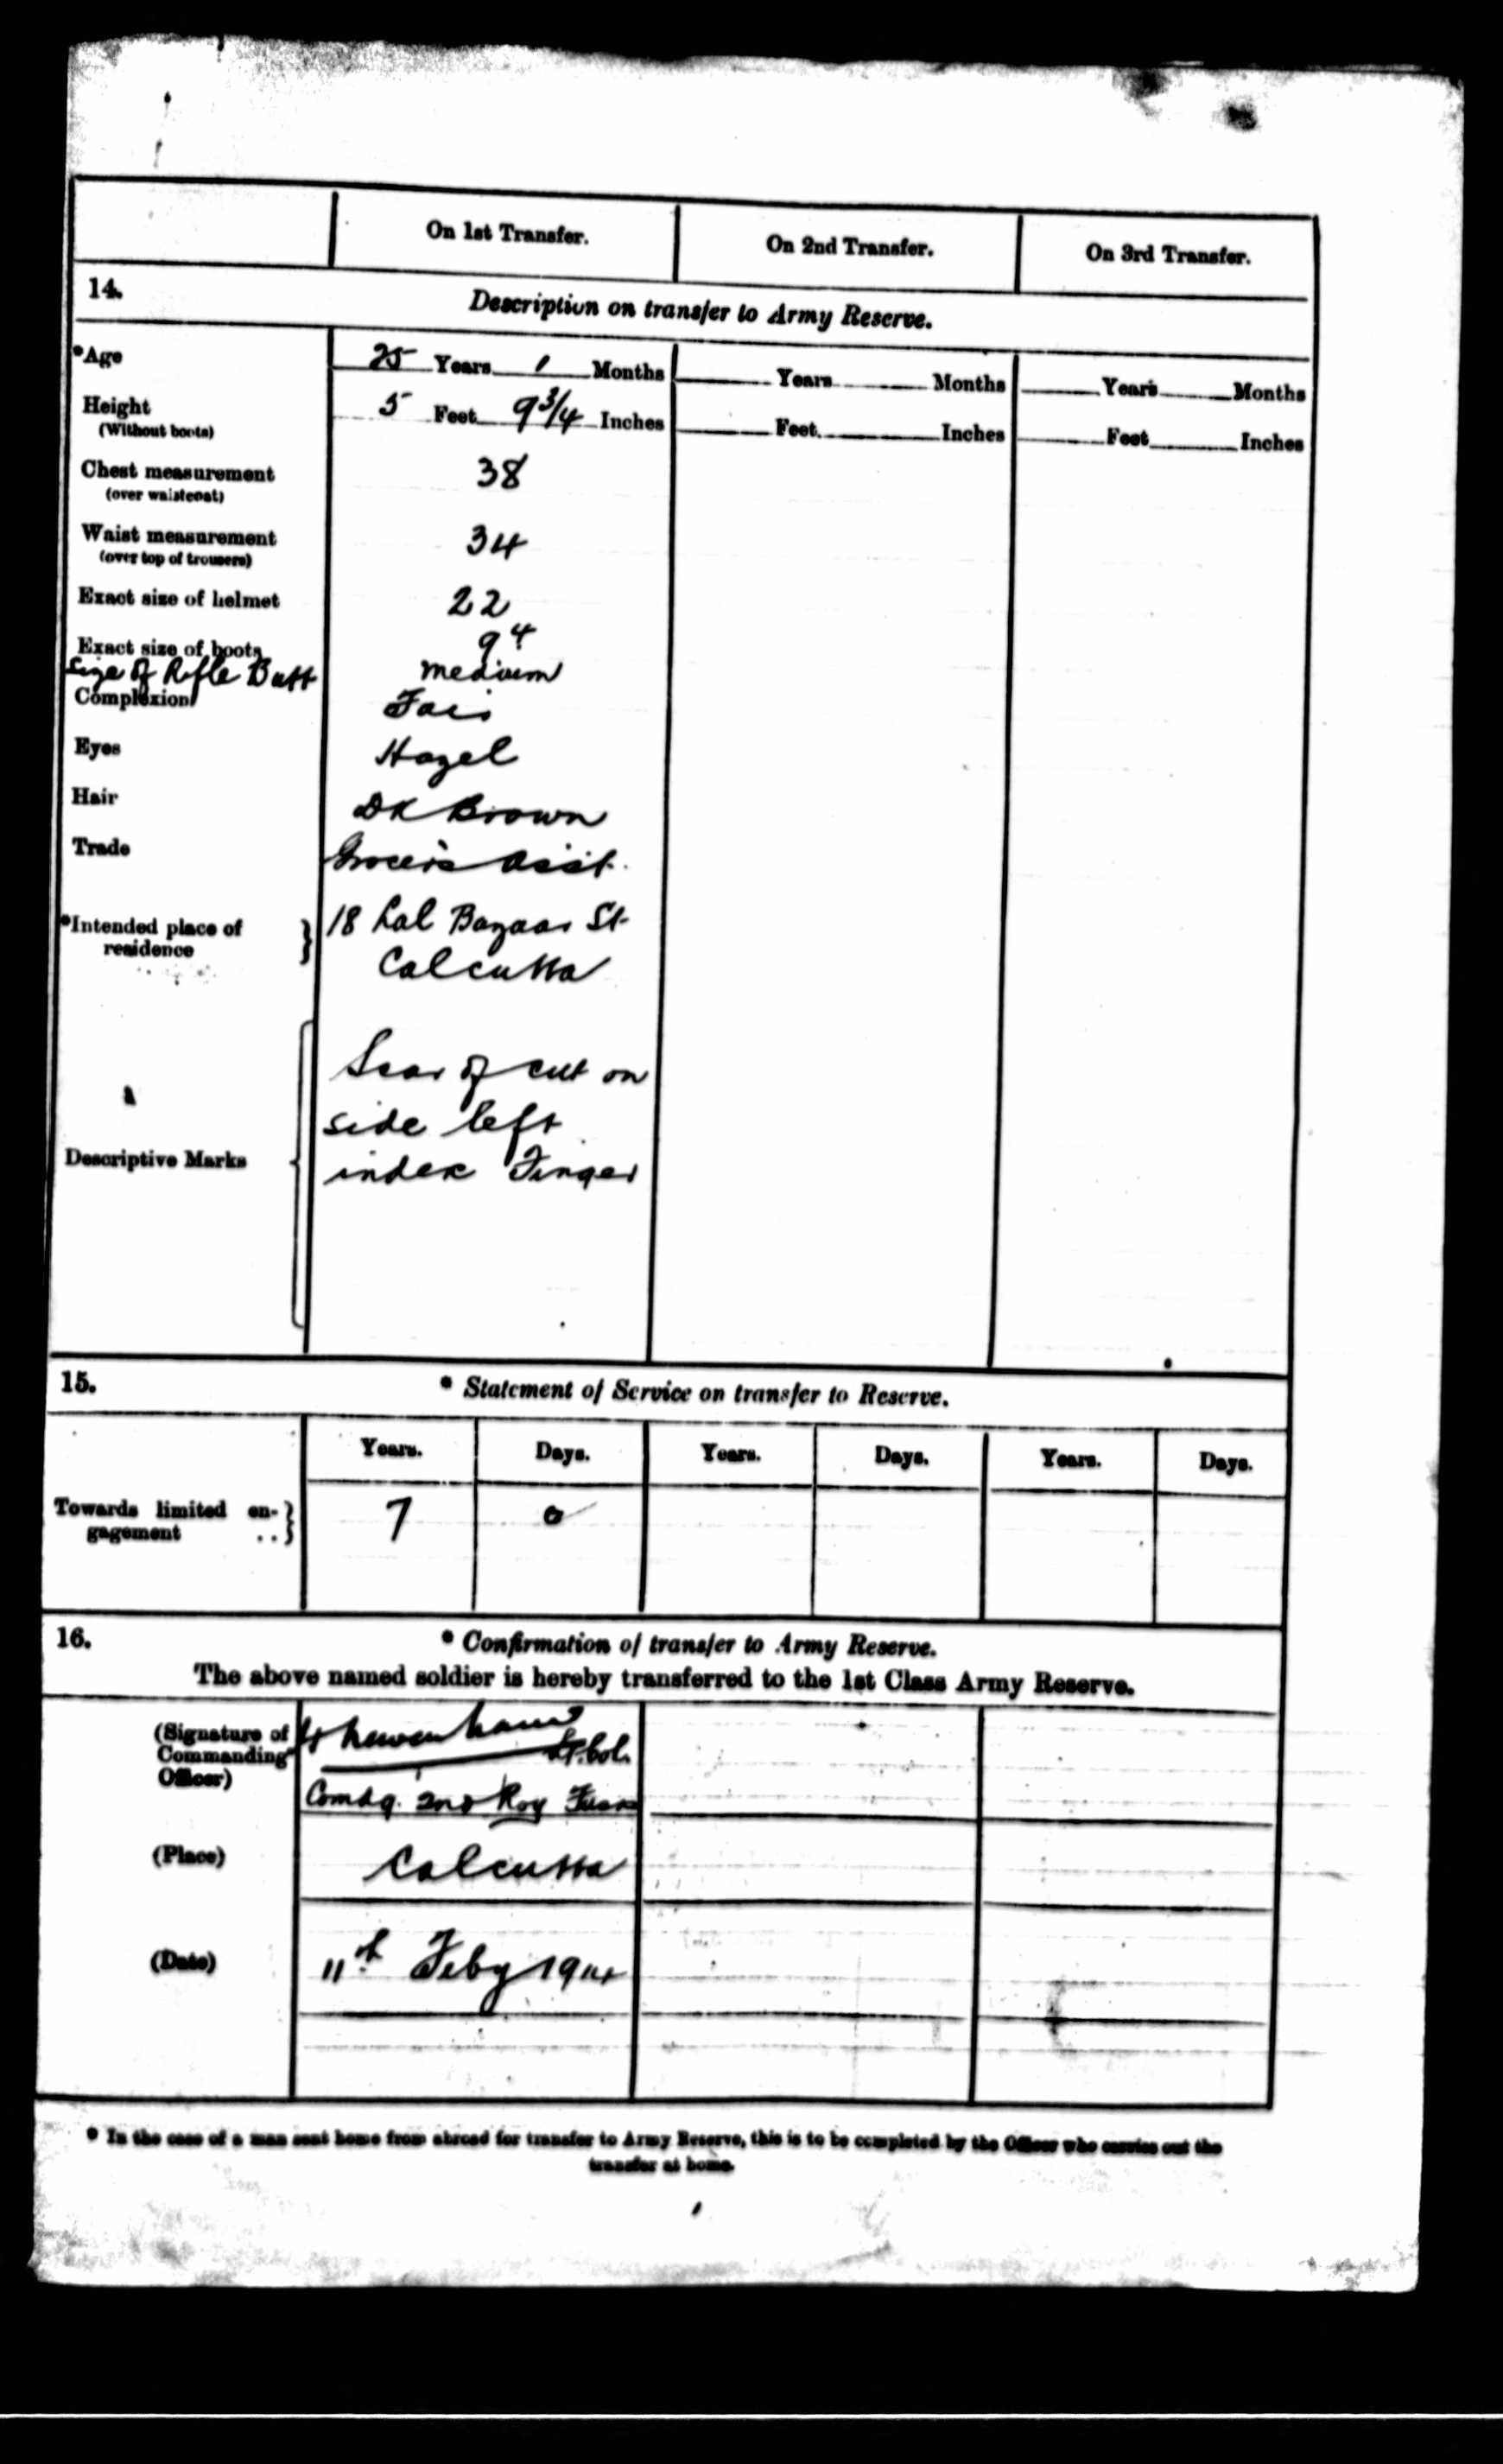 On 1st Transfer. On 2nd Transfer. On 3rd Transfer.
14. Description on transfer to Army Reserve.
*Age 25 Years 1 Months Years Months Years Months
Height 5 Feet 9 3/4 Inches Feet Inches Feet Inches
(Without boots)
Chest measurement 38
(over waistcoat)
Waist measurement 34
(over top of trousers)
Exact size of helmet 22
Exact size of boots 9 4
Size of Rifle Butt medium
Complexion Fair
Eyes Hazel
Hair Dk Brown
Trade Grocer's Asst.
*Intended place of 18 Lal Bazaar St
residence Calcutta
Scar of cut on
side left
Descriptive Marks index Finger
15. * Statement of Service on transfer to Reserve.
Years. Days. Years. Days. Years. Days.
Towards limited en- 7 0
gagement ..
16. * Confirmation of transfer to Army Reserve.
The above named soldier is hereby transferred to the 1st Class Army Reserve.
(Signature of
Commanding Lt. Col.
Officer)
Comdg. 2nd Roy Fus
(Place) Calcutta
(Date) 11th Feby 1914
* In the case of a man sent home from abroad for transfer to Army Reserve, this is to be completed by the Officer who carries out the
transfer at home.